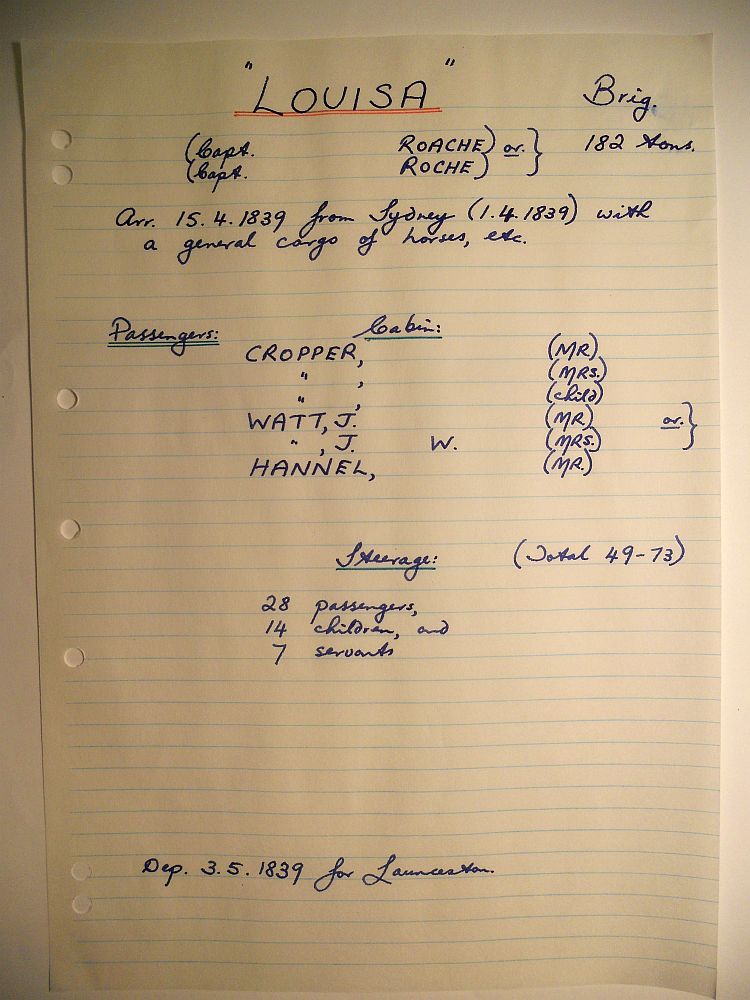 "LOUISA" Brig.
(Capt. ROACHE) or. } 182 tons.
(Capt. ROCHE)
Arr. 15.4.1839 from Sydney (1.4.1839) with
a general cargo of horses, etc.
Passengers: Cabin:
CROPPER, (MR)
" , (MRS.)
" , (child)
WATT, J. (MR) or. }
" , J. W. (MRS.)
HANNEL, (MR.)
Steerage: (Total 49-73)
28 passengers,
14 children, and
7 servants
Dep. 3.5.1839 for Launceston.